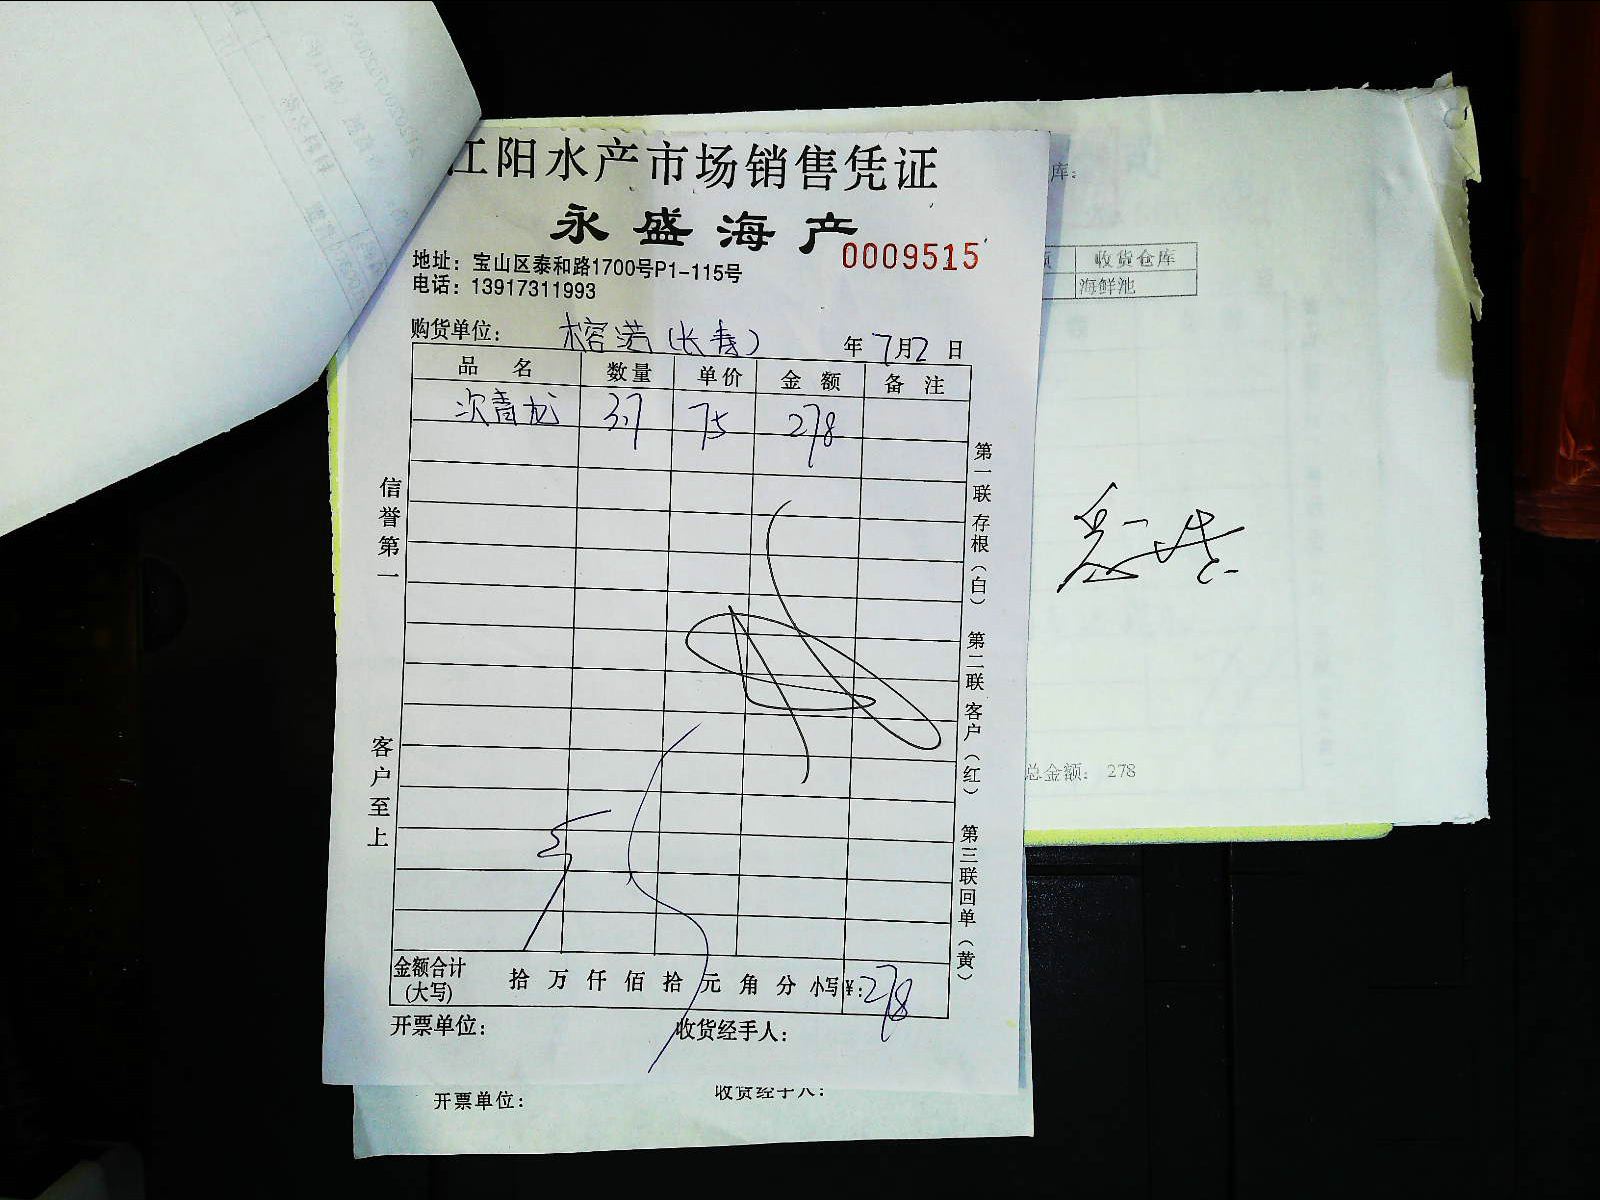 江阳水产市场销售凭证
永盛海产
0009515
地址：宝山区泰和路1700号P1-115号
电话：13917311993
购货单位： 榕港(长寿) 年7月2日
品 名 数量 单价 金 额 备 注
次青龙 3.7 75 278
信誉第一
客户至上
第一联 存根（白） 第二联 客户（红） 第三联 回单（黄）
金额合计(大写) 拾 万 仟 佰 拾 元 角 分 小写¥:278
开票单位： 收货经手人：
开票单位： 收货经手人：
库：
收货仓库
海鲜池
总金额： 278